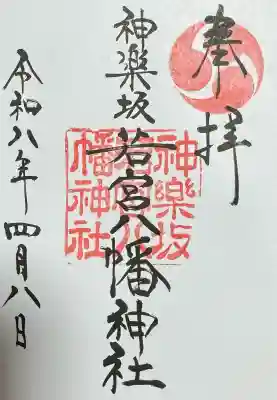 奉拝
神樂坂若宮八幡神社
神樂坂
若宮八
幡神社
令和八年四月八日